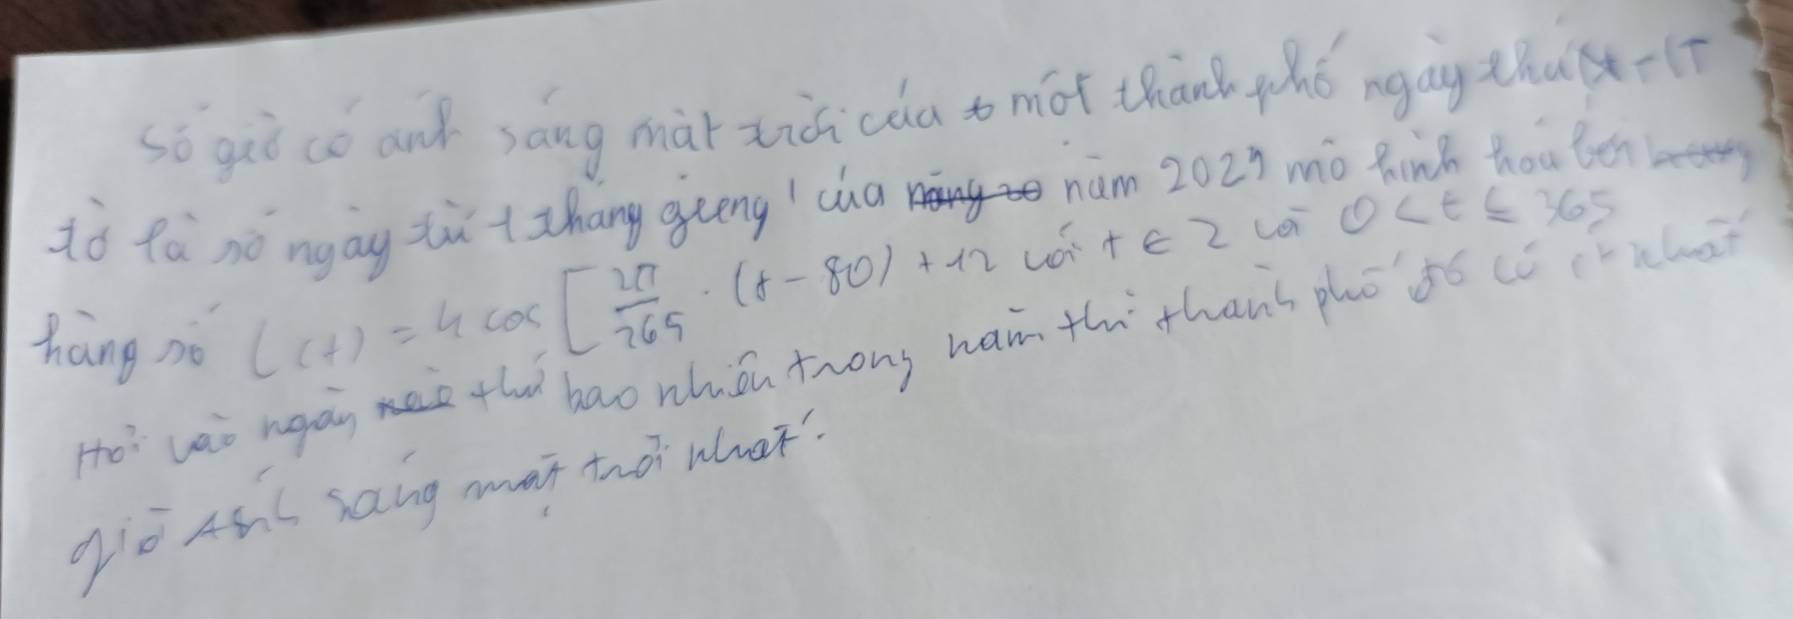 Số giờ có ánh sáng mặt trời của một thành phố ngày thứ t - (t
tờ là số ngày từ 1 tháng giêng của năm 2024 mô hình hoá bởi
hàng số L(t) = 4 cos [2π/365 . (t - 80) + 12 với t ∈ Z và 0 < t ≤ 365
Hỏi vào ngày thứ bao nhiêu trong năm thì thành phố đó có ít nhất
giờ Ánh sáng mặt trời nhất.